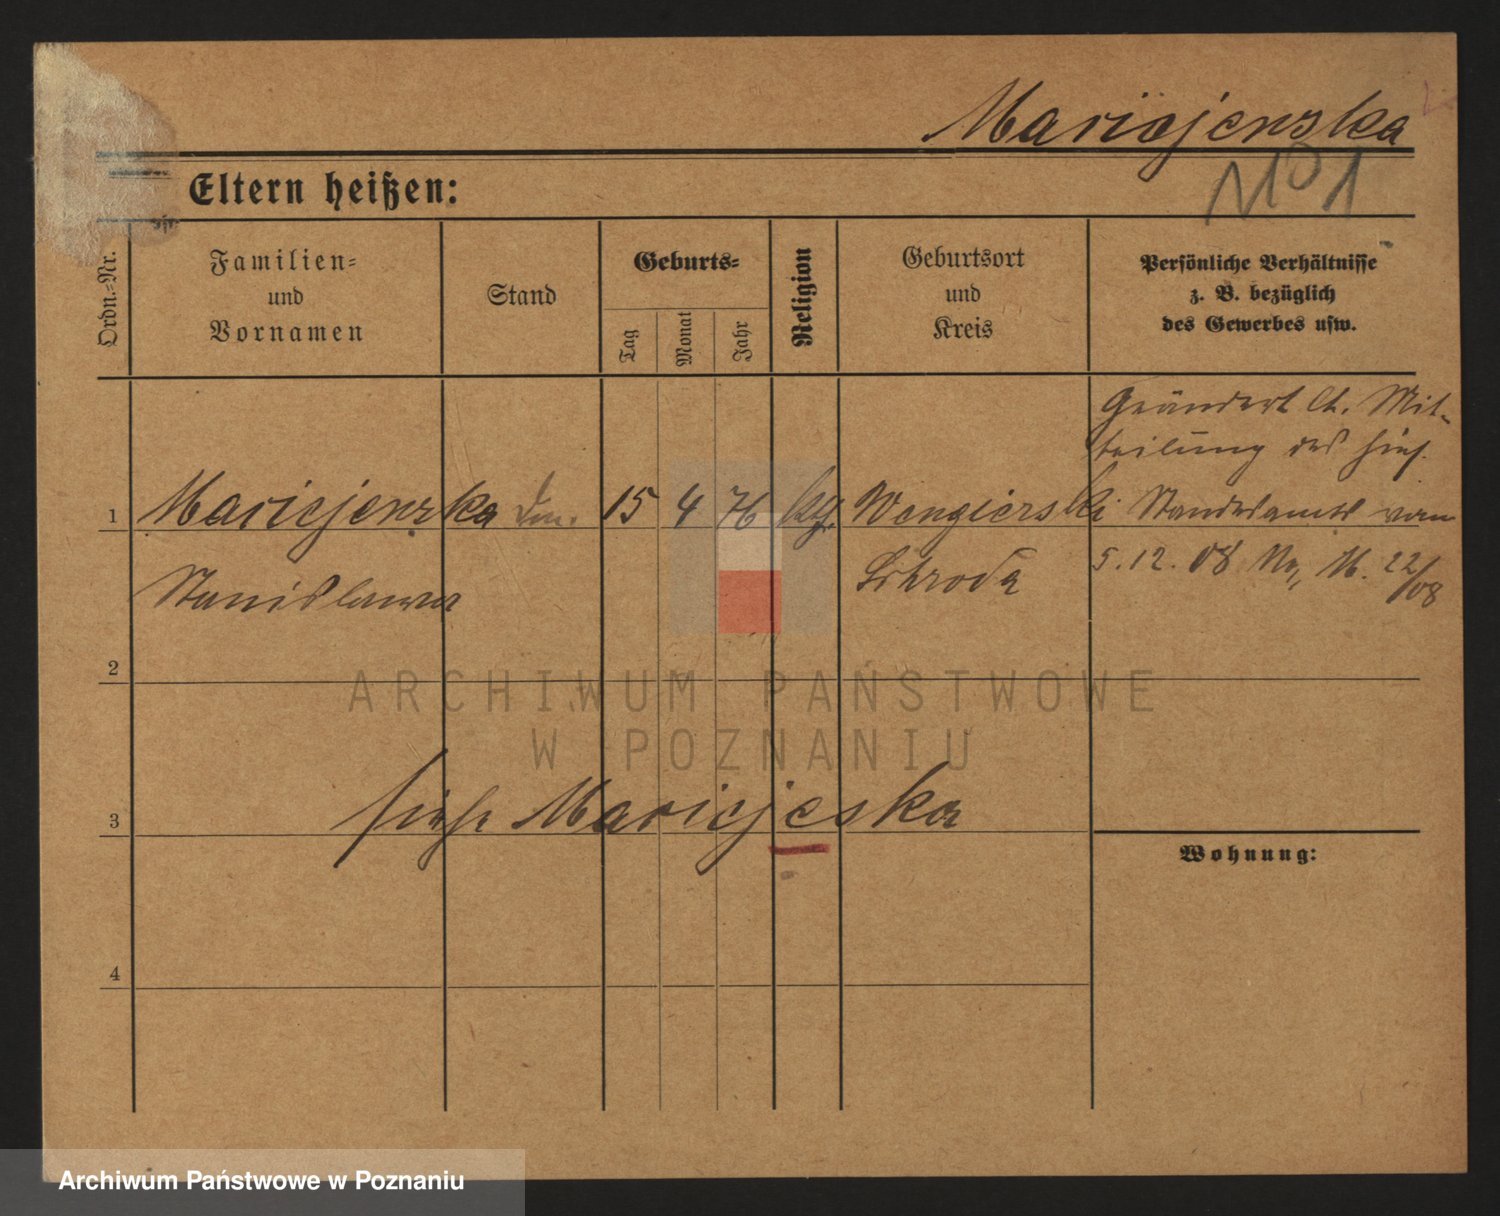 Maricjenska
No 1
Eltern heißen:
Ordn.-Nr.
Familien-
und
Vornamen
Stand
Geburts-
Tag
Monat
Jahr
Religion
Geburtsort
und
Kreis
Persönliche Verhältnisse
z. B. bezüglich
des Gewerbes usw.
1
Maricjenska
15
4
76
Wengierski
Stanislawa
Schroda
Geändert lt. Mit-
teilung des hies.
Standesamts vom
5. 12. 08 M. 22/08
2
ARCHIWUM PAŃSTWOWE
W POZNANIU
3
siehe Maricjeska
Wohnung:
4
Archiwum Państwowe w Poznaniu